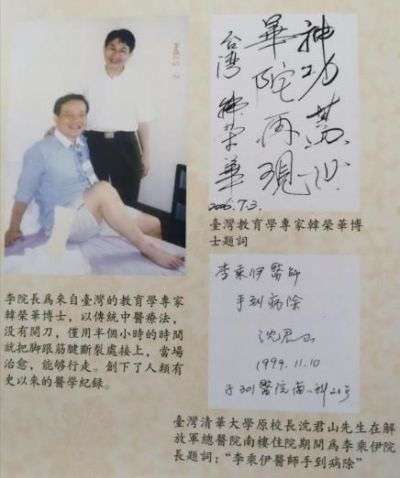 神功
華陀再現
台灣 韓榮華
2006.7.3.
臺灣教育學專家韓榮華博
士題詞
李院長爲來自臺灣的教育學專家
韓榮華博士，以傳統中醫療法，
没有開刀，僅用半個小時的時間
就把脚跟筋腱斷裂處接上，當場
治愈，能够行走。創下了人類有
史以來的醫學紀録。
李乘伊醫師
手到病除
沈君山
1999.11.10
于301醫院
臺灣清華大學原校長沈君山先生在解
放軍總醫院南樓住院期間爲李乘伊院
長題詞：“李乘伊醫師手到病除”